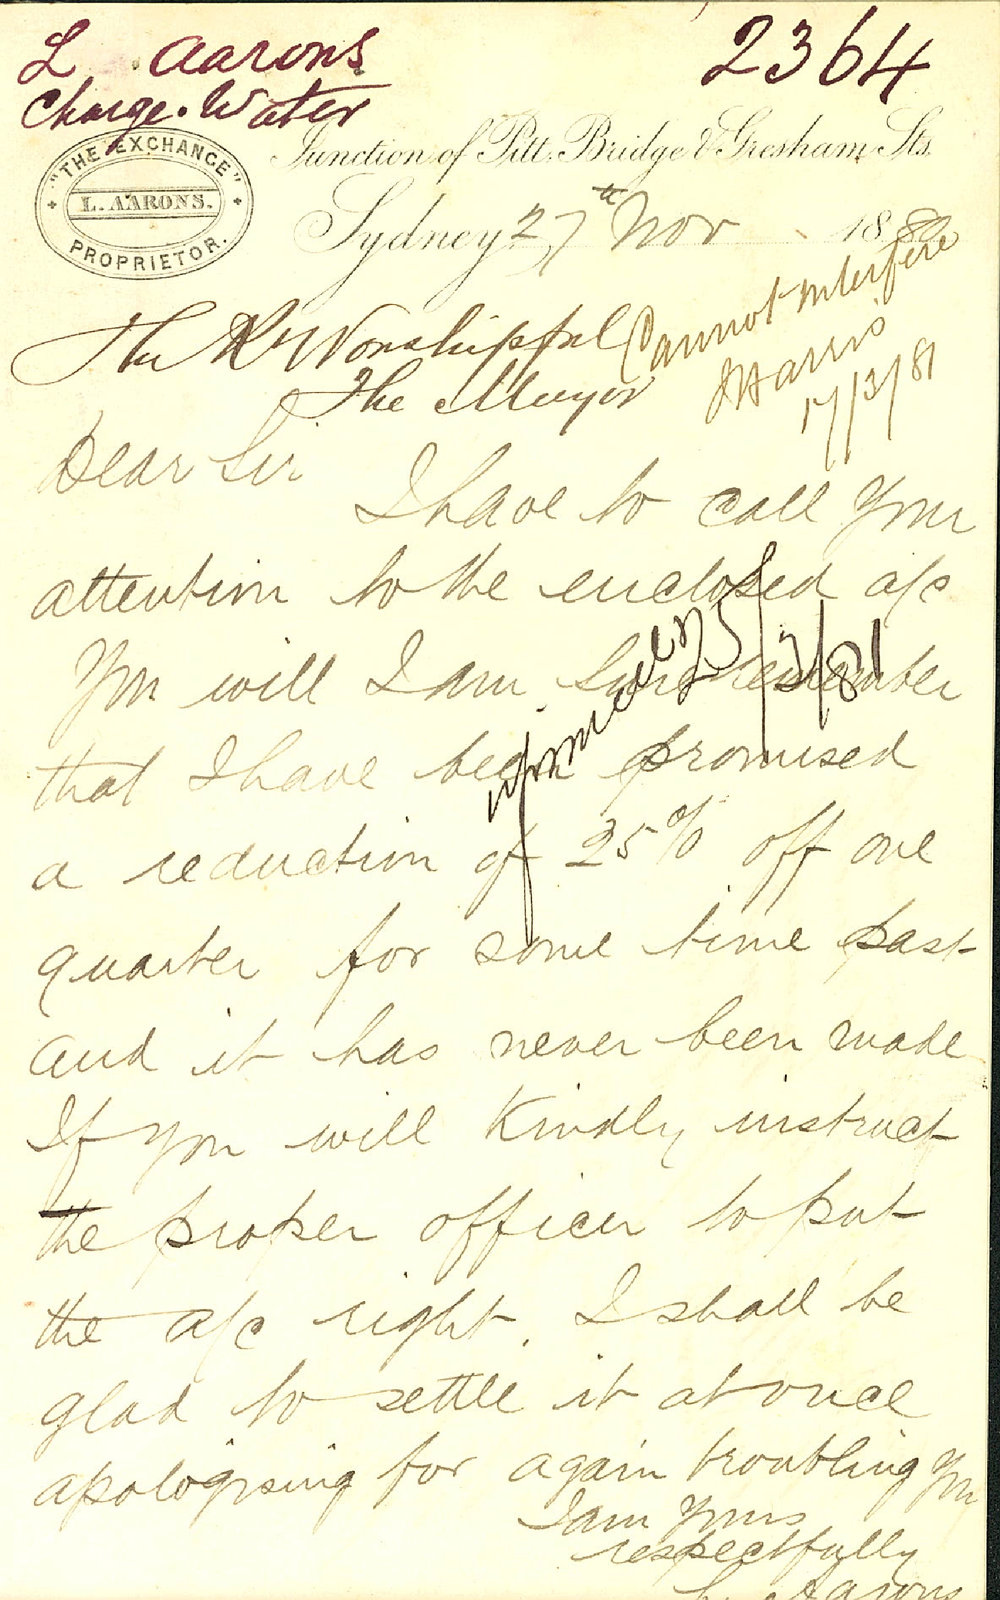 L Aarons
Charge. Water
2364
"THE EXCHANGE"
L. AARONS.
PROPRIETOR.
Junction of Pitt, Bridge & Gresham Sts.
Sydney 27th Nov 1880
The Rt Worshipful
The Mayor
Cannot interfere
Harris
17/3/81
Dear Sir
I have to call your
attention to the enclosed a/c
You will I am sure remember
that I have been promised
a reduction of 25% off one
quarter for some time past
and it has never been made
If you will Kindly instruct
the proper officer to put
the a/c right. I shall be
glad to settle it at once
apologising for again troubling you
I am yours
respectfully
L. Aarons
25/3/81